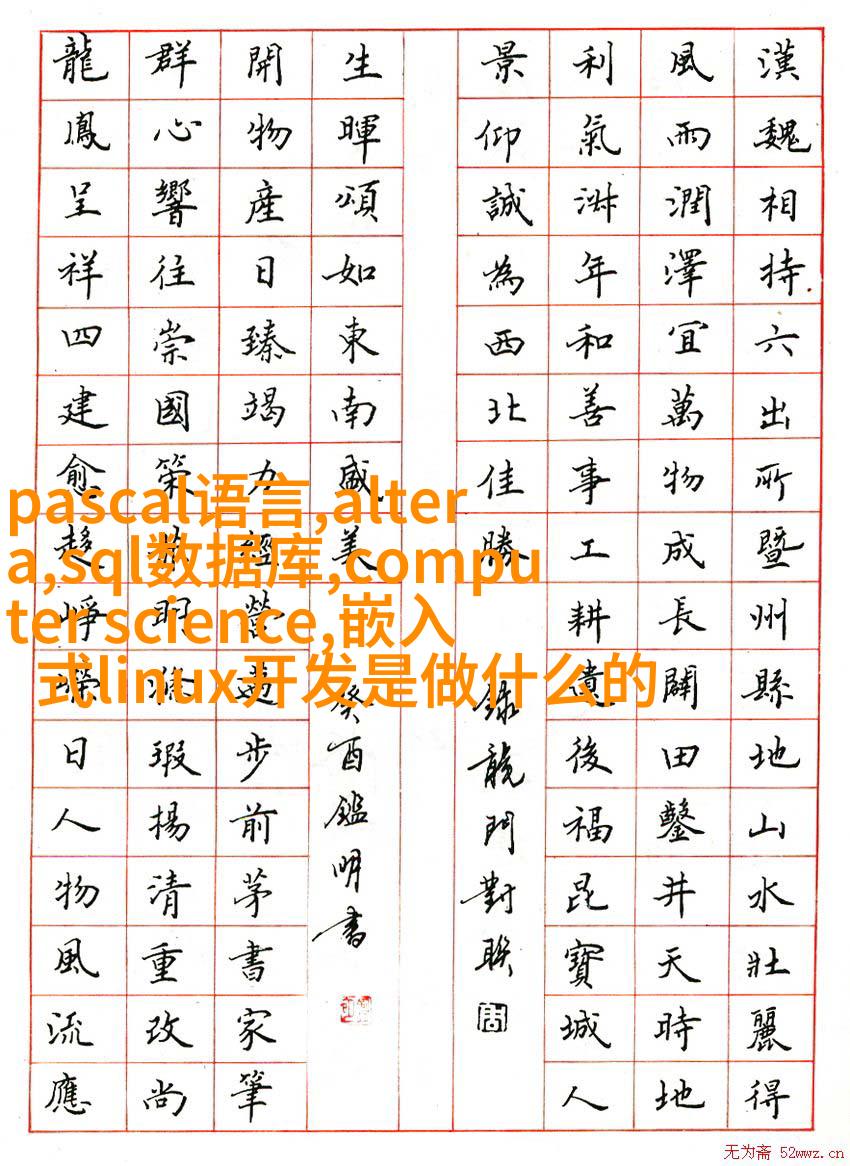 漢魏相持六出所暨州縣地山水壯麗得
風雨潤澤宜萬物成長闢田鑿井天時地
利氣淑年和善事工耕遺後福昆寶城人
景仰誠為西北佳勝
錄龍門對聯
生暉頌如東南盛美
癸酉鑑明書
開物產日臻竭力經營邁步前茅書家筆
群心響往崇國策數明滌瑕揚清重改尚
龍鳳呈祥四建愈趨崢嶸日人物風流應
pascal语言,alter
a,sql数据库,compu
ter science,嵌入
式linux开发是做什么的
无为斋 52wwz.cn